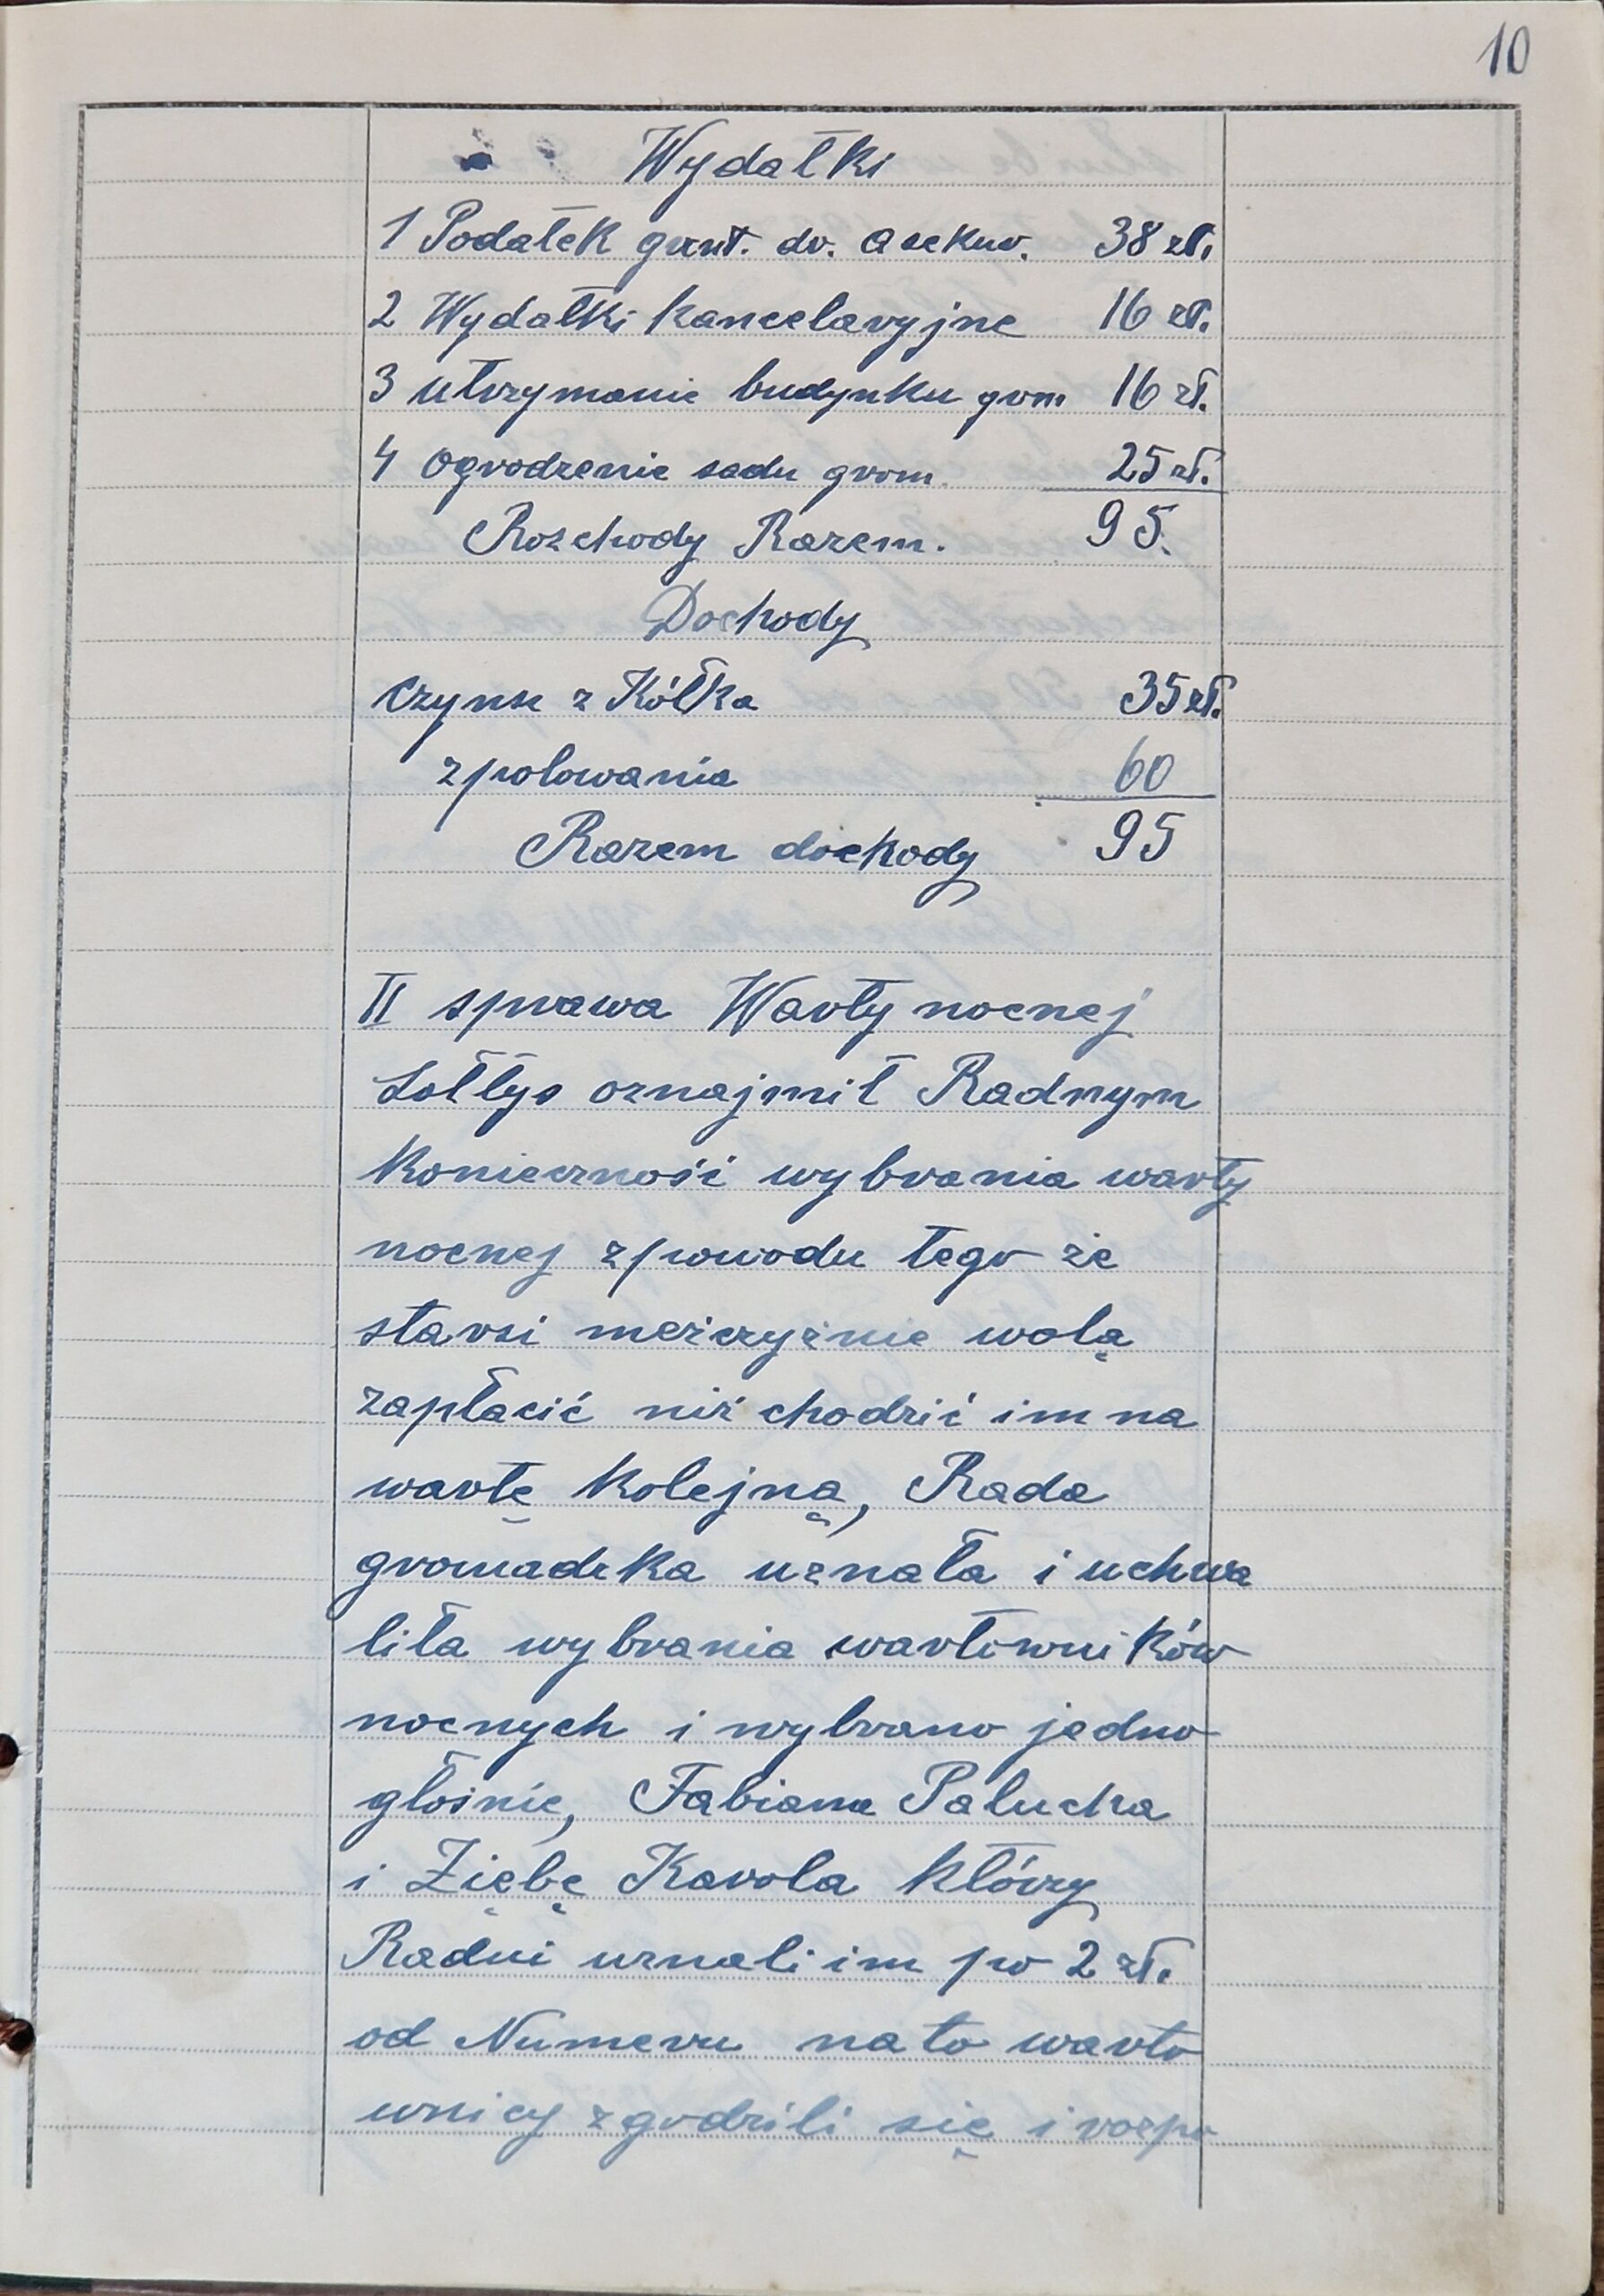 10
Wydatki
1 Podatek grunt. dr. asekur. 38 zł.
2 Wydatki kancelaryjne 16 zł.
3 utrzymanie budynku grom 16 zł.
4 ogrodzenie sadu grom. 25 zł.
Rozchody Razem. 95.
Dochody
czynsz z Kółka 35 zł.
z polowania 60
Razem dochody 95
II sprawa Warty nocnej
Sołtys oznajmił Radnym
Konieczność wybrania warty
nocnej z powodu tego że
starsi meżczyźnie wolą
zapłacić niż chodzić im na
wartę Kolejną, Rada
gromadzka uznała i uchwa
liła wybrania wartowników
nocnych i wybrano jedno
głośnie, Fabiana Palucha
i Ziębę Karola którzy
Radni uznali im po 2 zł.
od Numeru na to warto
wnicy zgodzili się i rozpo